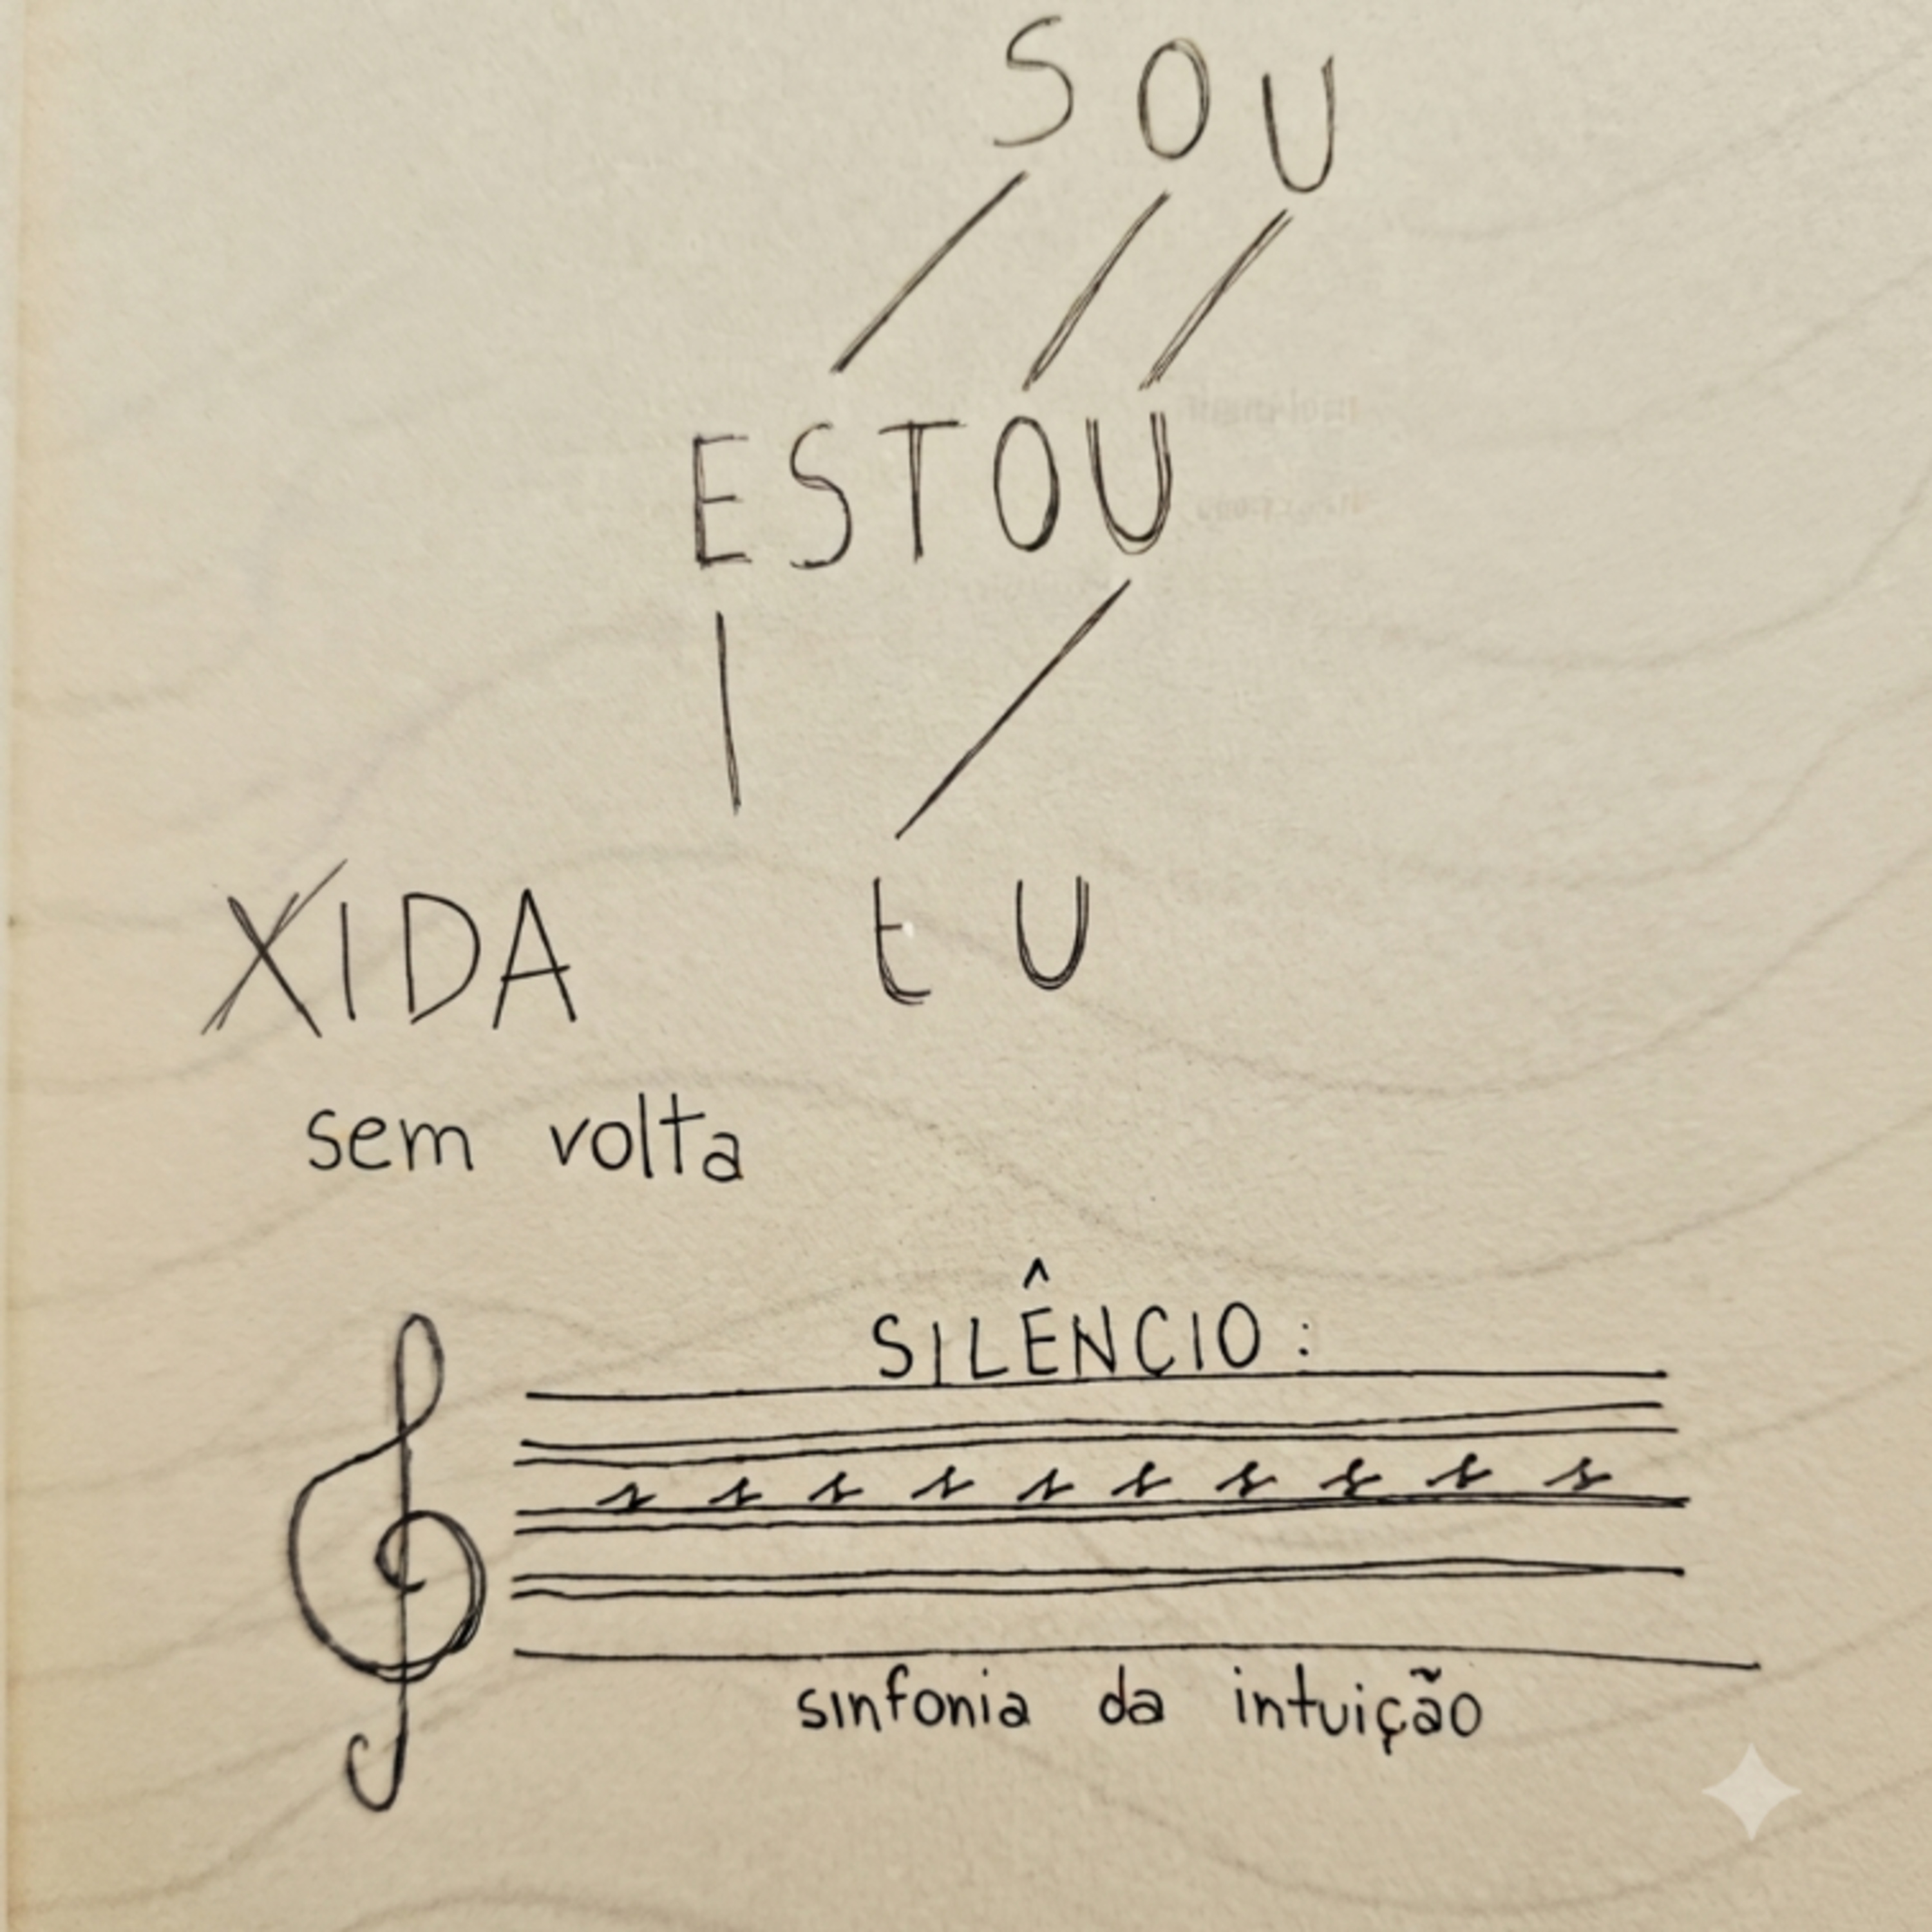 SOU
ESTOU
XIDA tU
sem volta
SILÊNCIO:
sinfonia da intuição